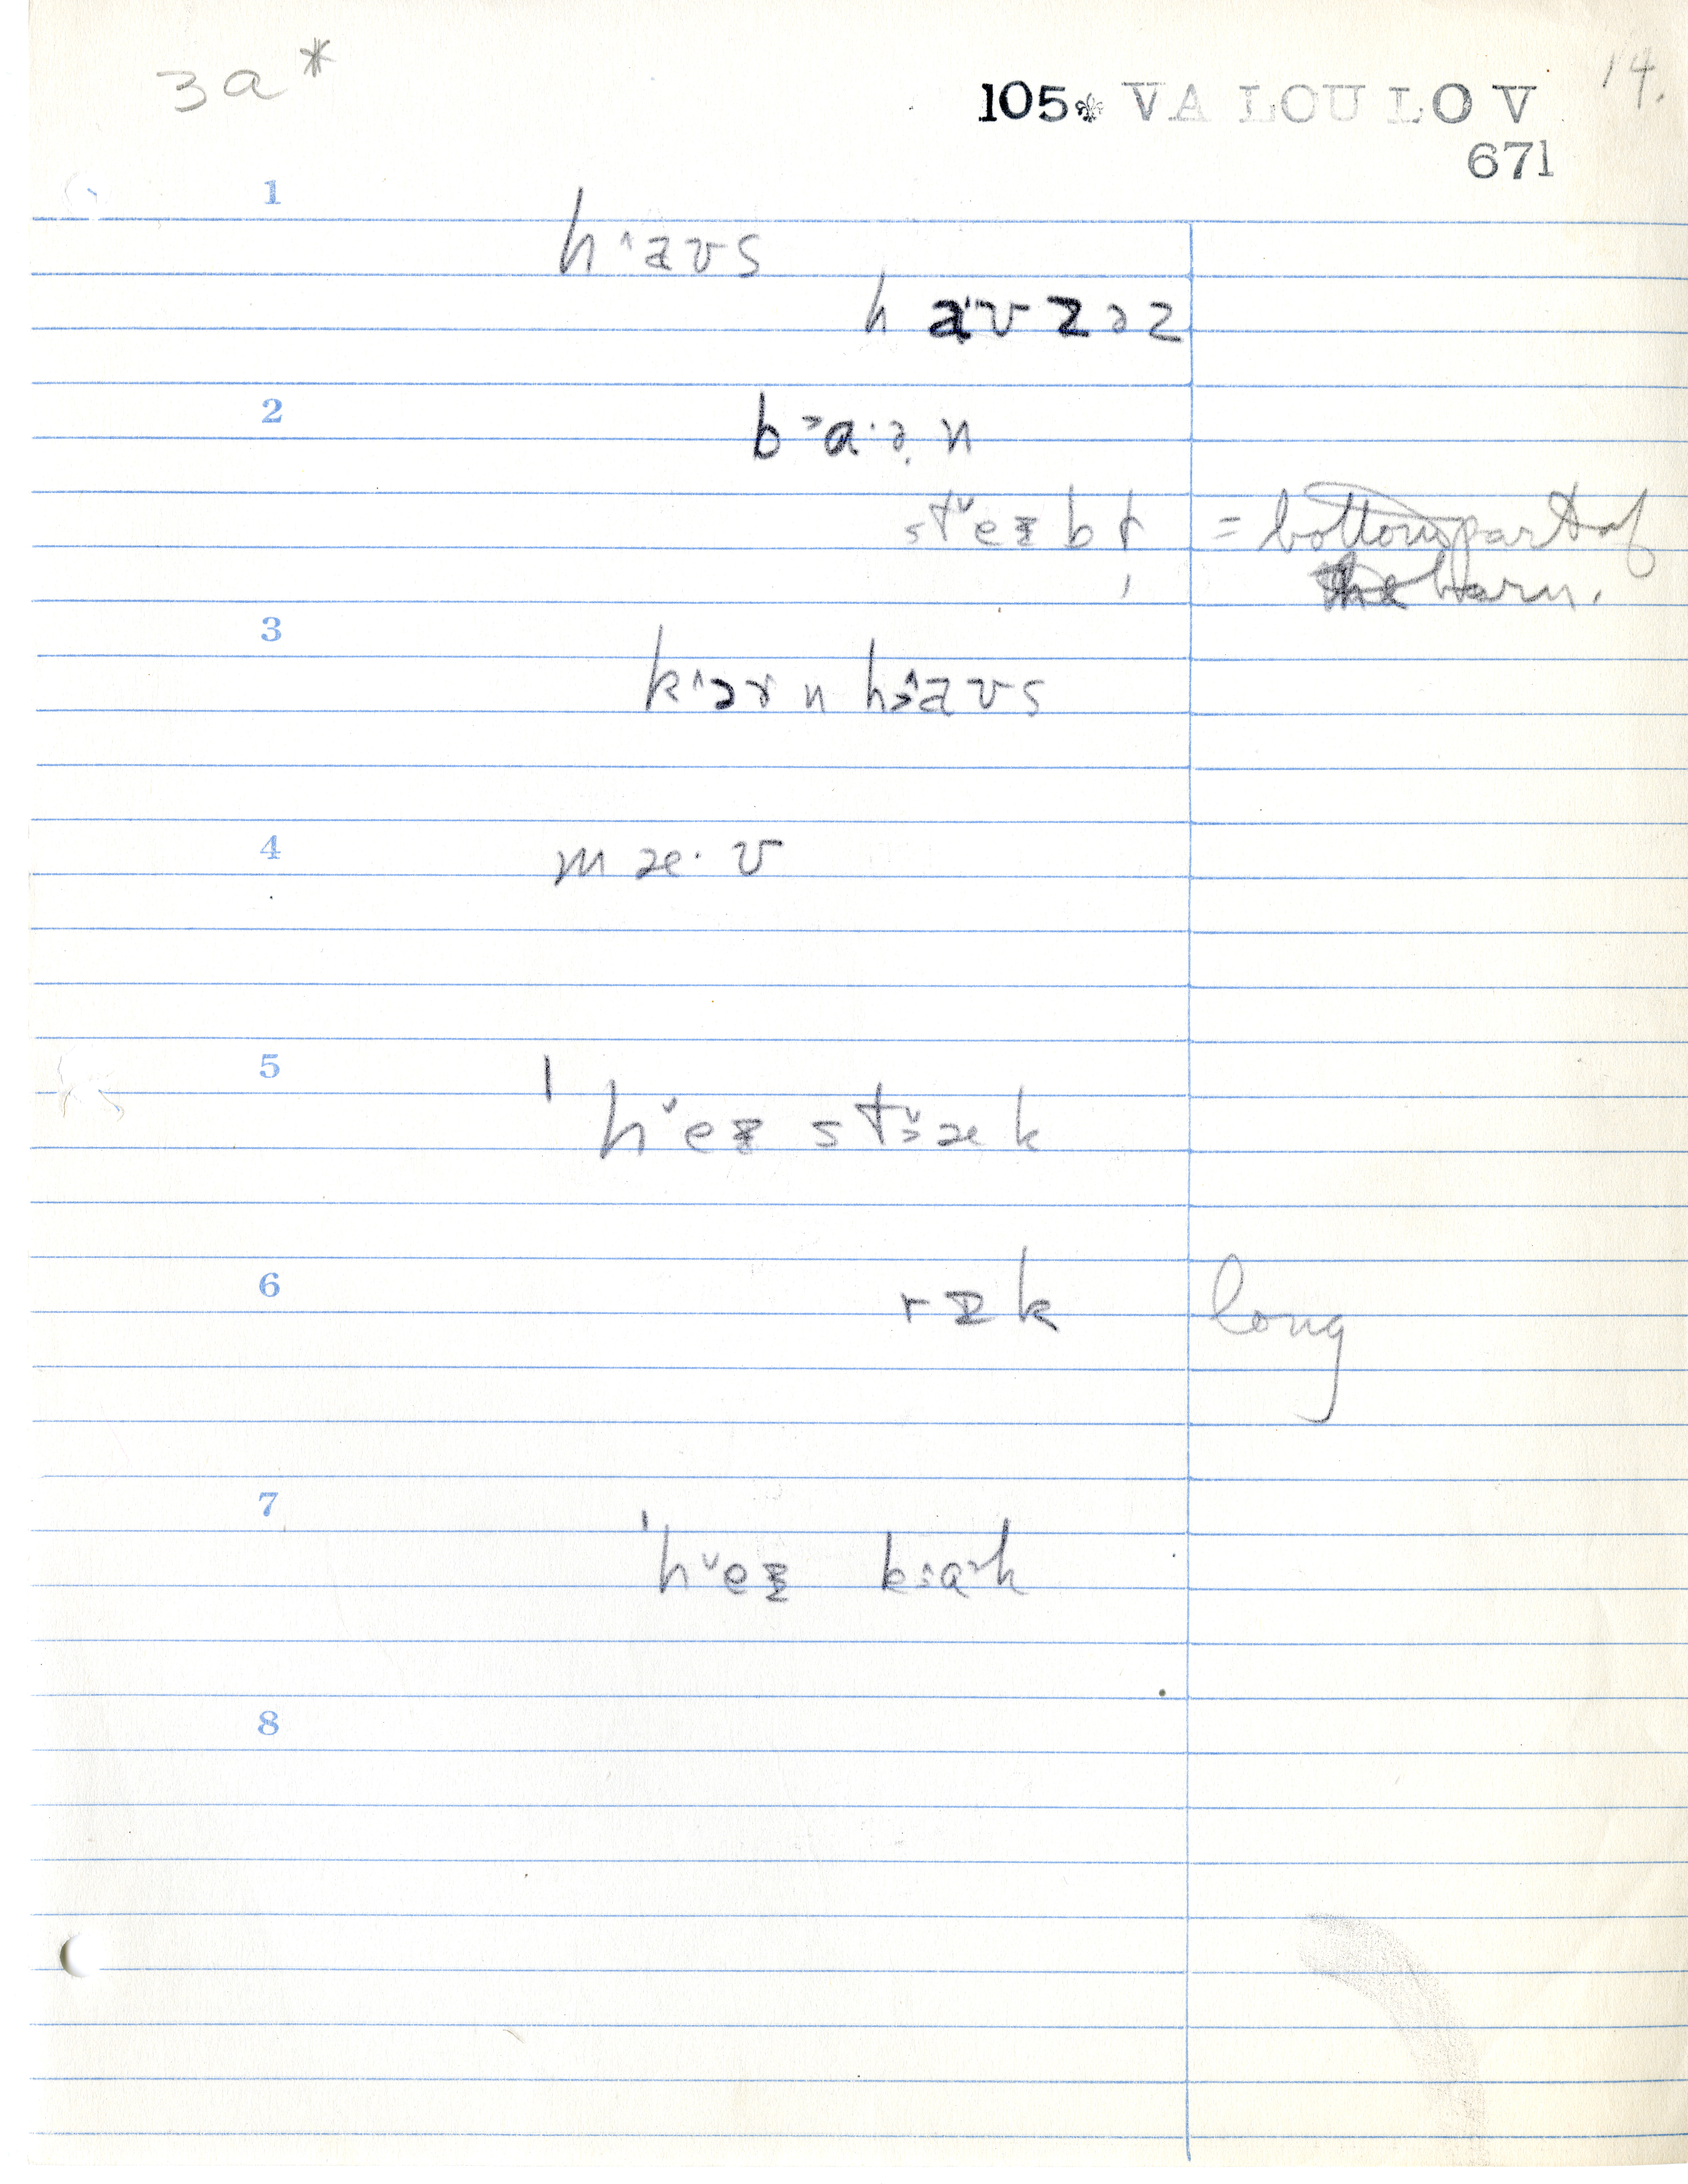 3a*
14.
105⚜ VA LOU LOV
671
1
h^aʊs
haʊzəz
2
b˃a·ə̣n
steɪbɫ = bottom part of
the barn.
3
k^ɔrn h^aʊs
4
mæ·ʊ
5
ˈheɪ stæk
6
rɪk long
7
ˈheɪ kɑk
8